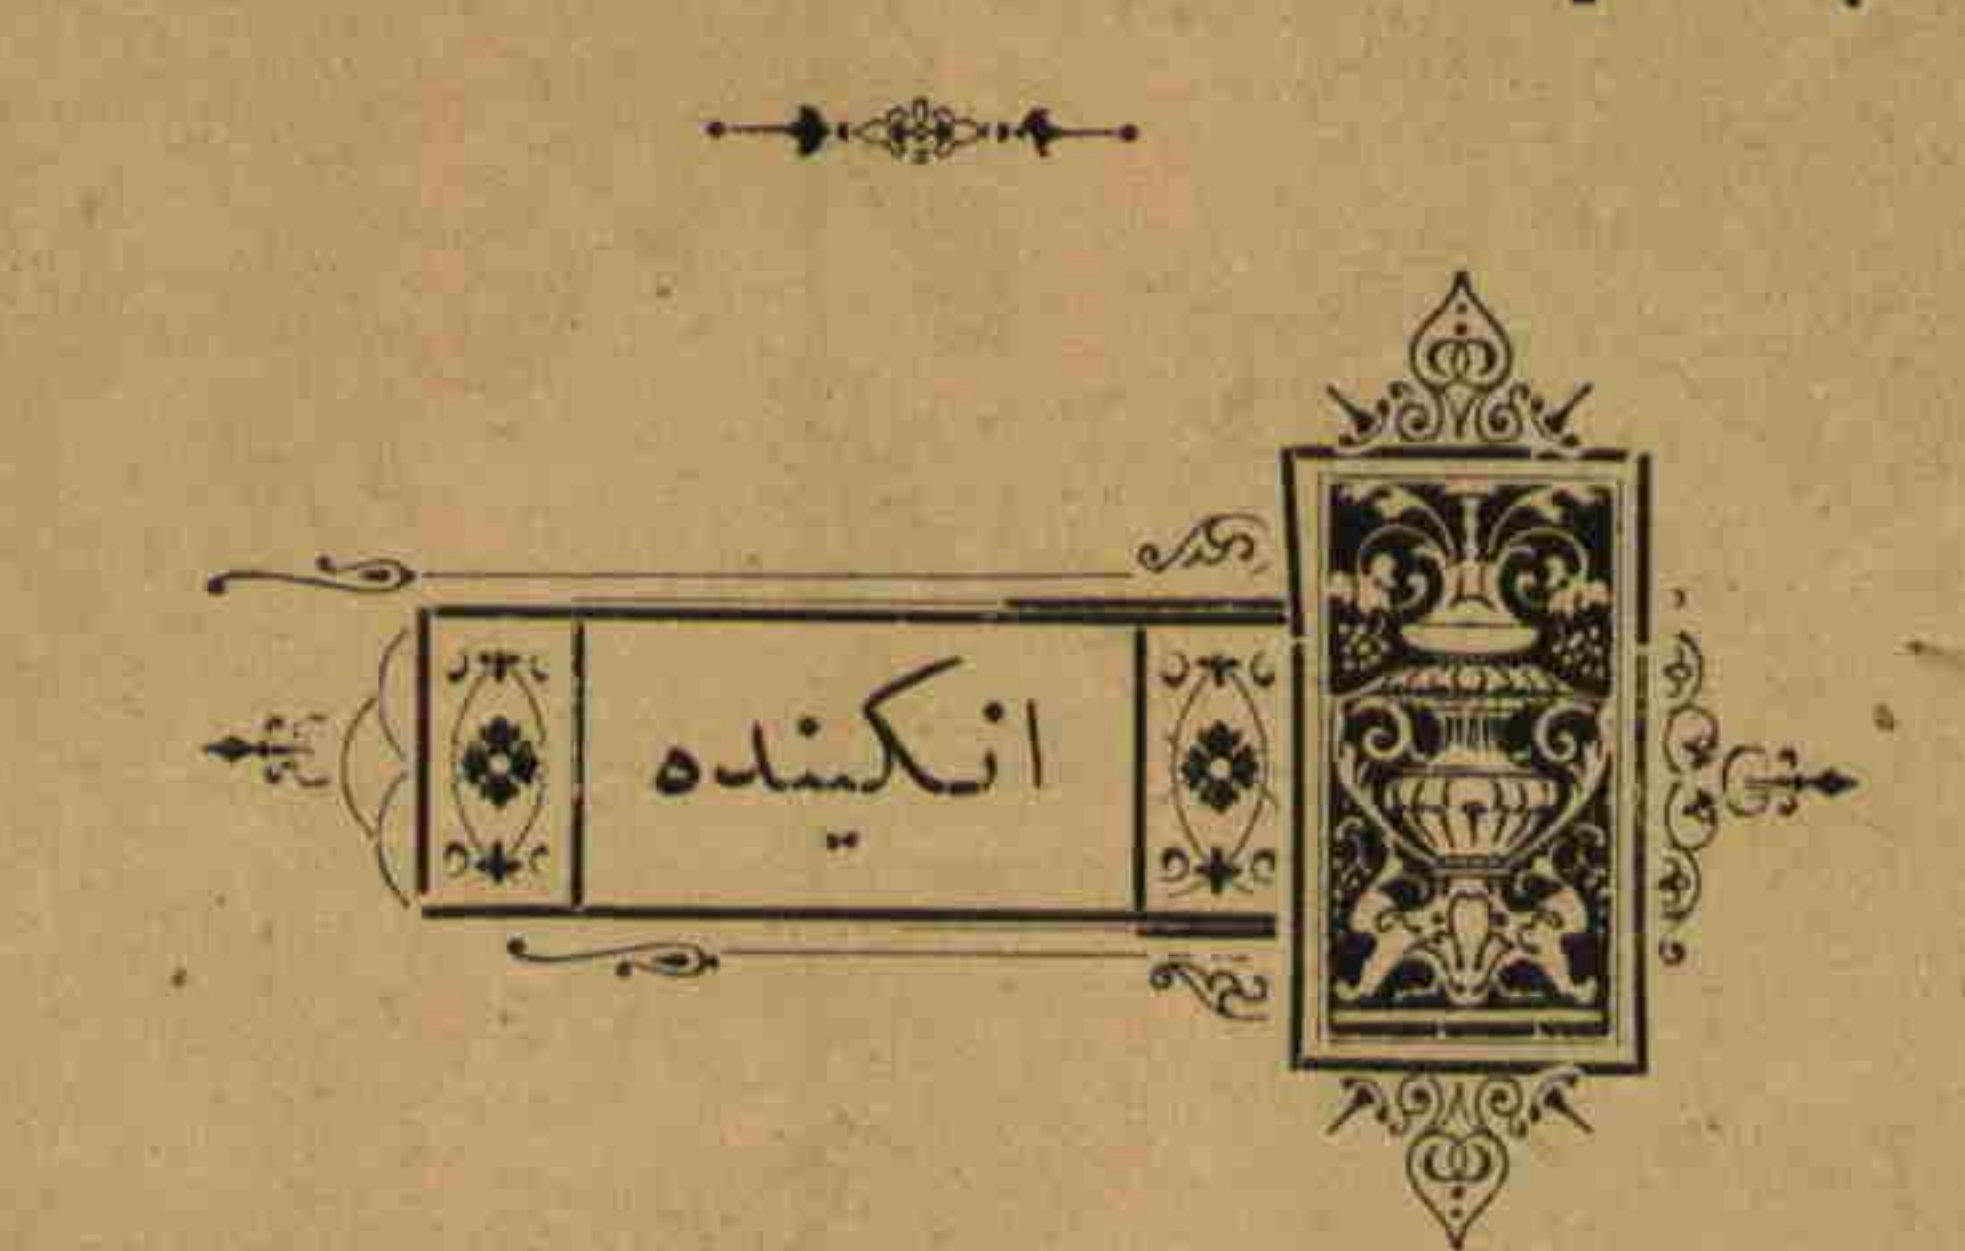 انكینده